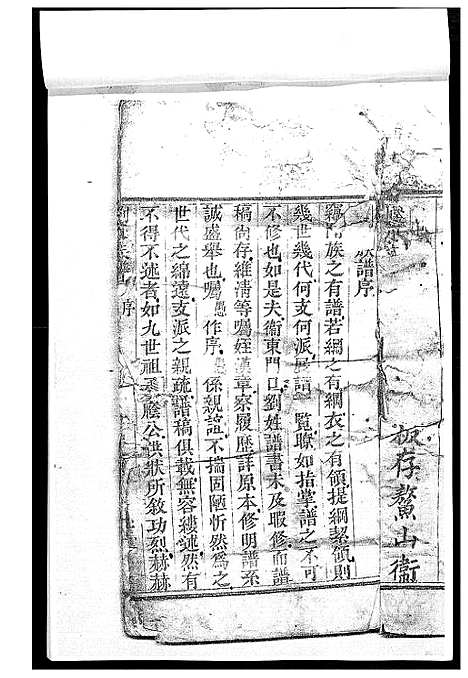 板存鰲山衛
譜序
族之有譜若網之有綱衣之有領提綱絜領則
幾世幾代何支何派展譜一覽瞭如指掌譜之不可
不修也如是夫衛東門口劉姓譜書未及暇修而譜
稿尚存維清等囑姪漢章察履歷詳原本修明譜系
誠盛舉也囑愚作序愚係親誼不揣固陋忻然為之
世代之綿遠支派之親疏譜稿俱載無容縷述然有
不得不述者如九世祖丞廕公洪狀所敘功烈赫赫
序